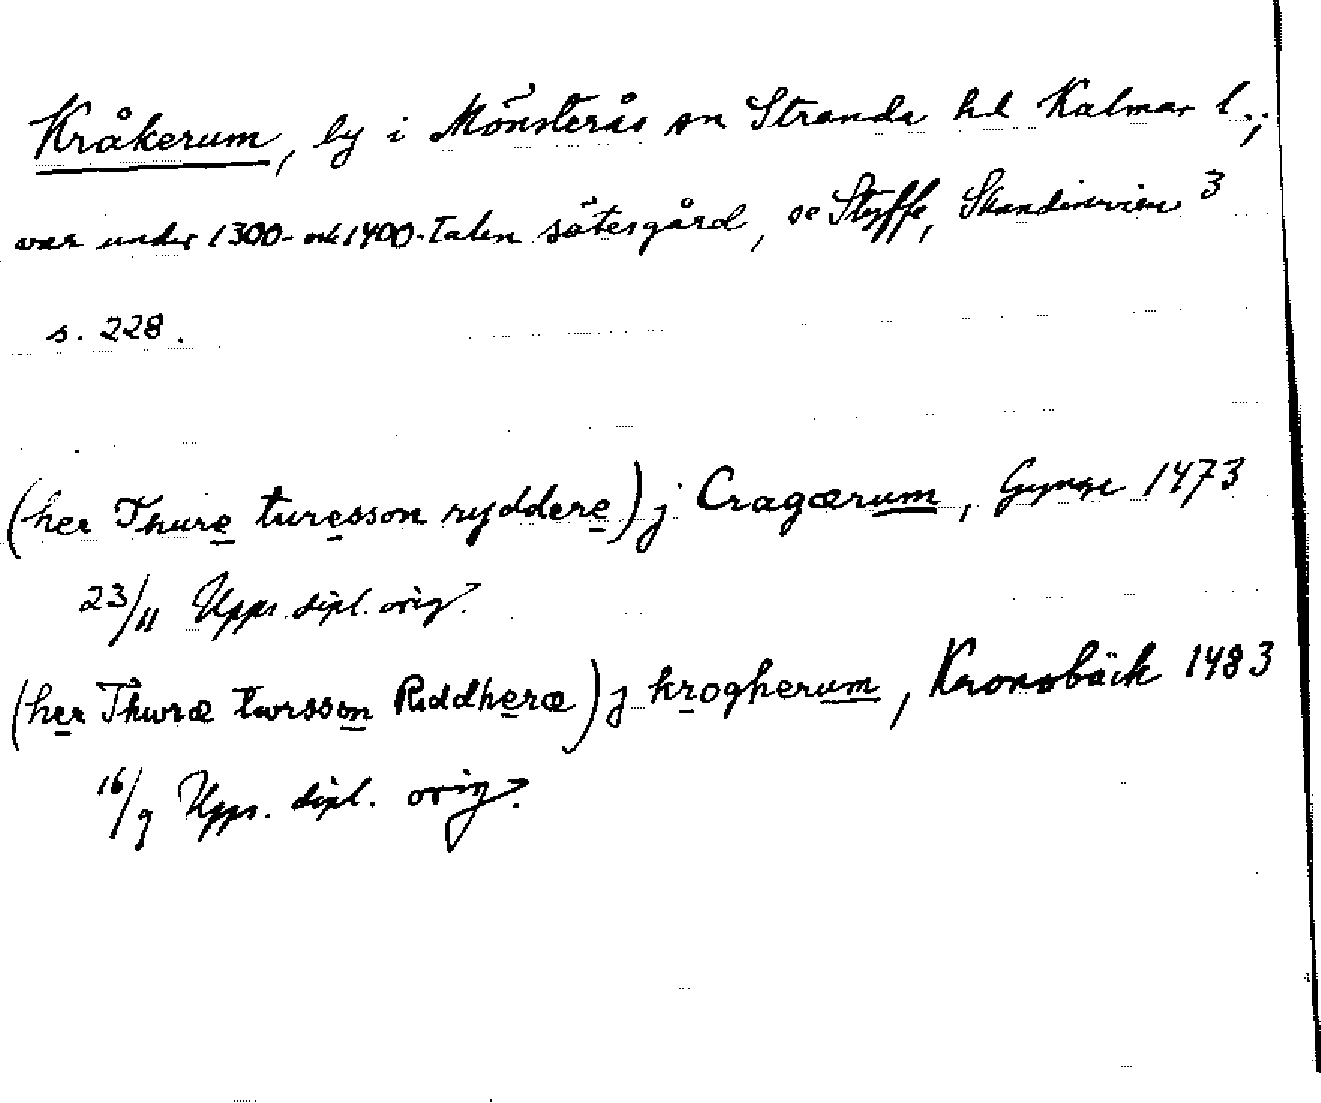 Kråkerum, by i Mönsterås sn Stranda hd Kalmar l.;
var under 1300- och 1400-talen sätesgård, se Styffe, Skandinavien 3
s. 228.
(her Thure turesson ryddere) j Cragærum, Gynge 1473
23/11 Upps. dipl. orig.
(her Thuræ tursson Riddheræ) j krogherum, Kronobäck 1483
16/9 Upps. dipl. orig.